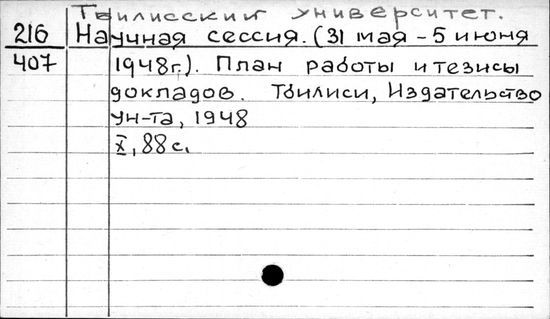 Тбилисский университет.
216 Научная сессия. (31 мая - 5 июня
407 1948г.). План работы и тезисы
докладов. Тбилиси, Издательство
ун-та, 1948
X, 88 с.